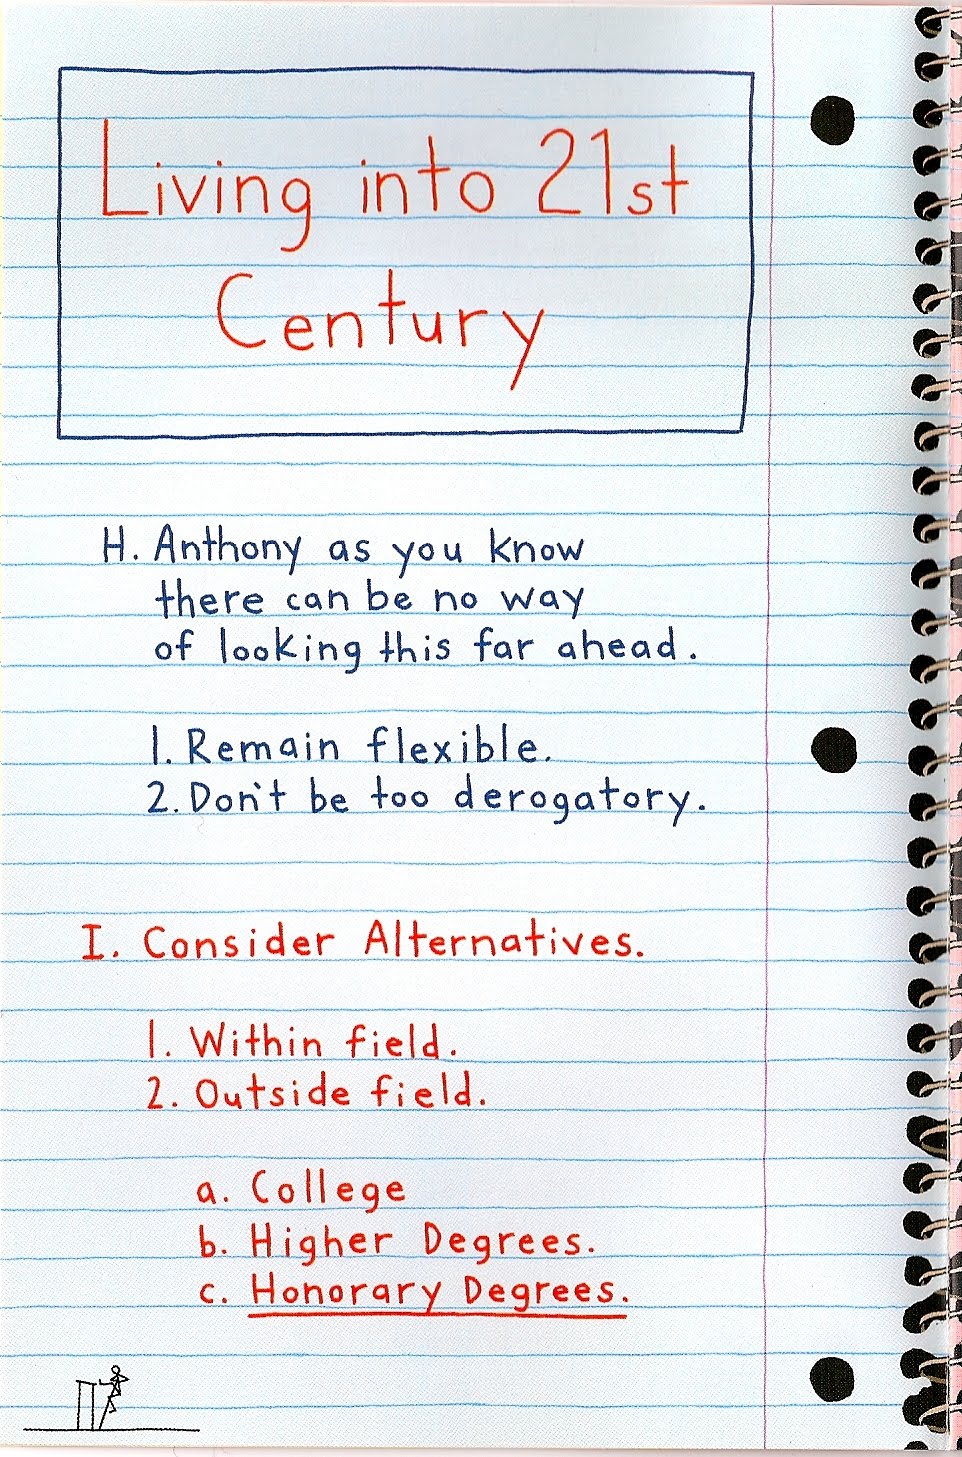 Living into 21st
Century
H. Anthony as you know
there can be no way
of looking this far ahead.
1. Remain flexible.
2. Don't be too derogatory.
I. Consider Alternatives.
1. Within field.
2. Outside field.
a. College
b. Higher Degrees.
c. Honorary Degrees.